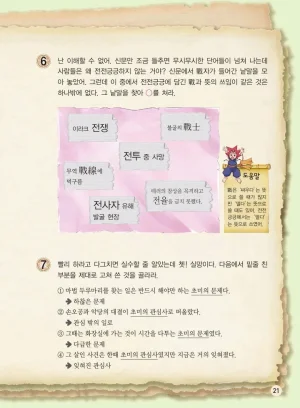 6 난 이해할 수 없어. 신문만 조금 들추면 무시무시한 단어들이 넘쳐 나는데
사람들은 왜 전전긍긍하지 않는 거야? 신문에서 戰자가 들어간 낱말을 모
아 놓았어. 그런데 이 중에서 전전긍긍에 담긴 戰과 뜻의 쓰임이 같은 것은
하나밖에 없다. 그 낱말을 찾아 ○를 쳐라.
이라크 전쟁
불굴의 戰士
전투 중 사망
무역 戰線에
먹구름
테러의 참상을 목격하고
전율을 금치 못했다.
전사자 유해
발굴 현장
도움말
戰은 '싸우다'는 뜻
으로 쓸 때가 많지
만 '떨다'는 뜻으로
쓸 때도 있어. 전전
긍긍에서는 '떨다'
는 뜻으로 쓰였어.
7 빨리 하라고 다그치면 실수할 줄 알았는데 쳇! 실망이다. 다음에서 밑줄 친
부분을 제대로 고쳐 쓴 것을 골라라.
① 마법 두루마리를 찾는 일은 반드시 해야만 하는 초미의 문제다.
➔ 하찮은 문제
② 손오공과 악당의 대결이 초미의 관심사로 떠올랐다.
➔ 관심 밖의 일로
③ 그때는 화장실에 가는 것이 시간을 다투는 초미의 문제였다.
➔ 다급한 문제
④ 그 살인 사건은 한때 초미의 관심사였지만 지금은 거의 잊혀졌다.
➔ 잊혀진 관심사
21